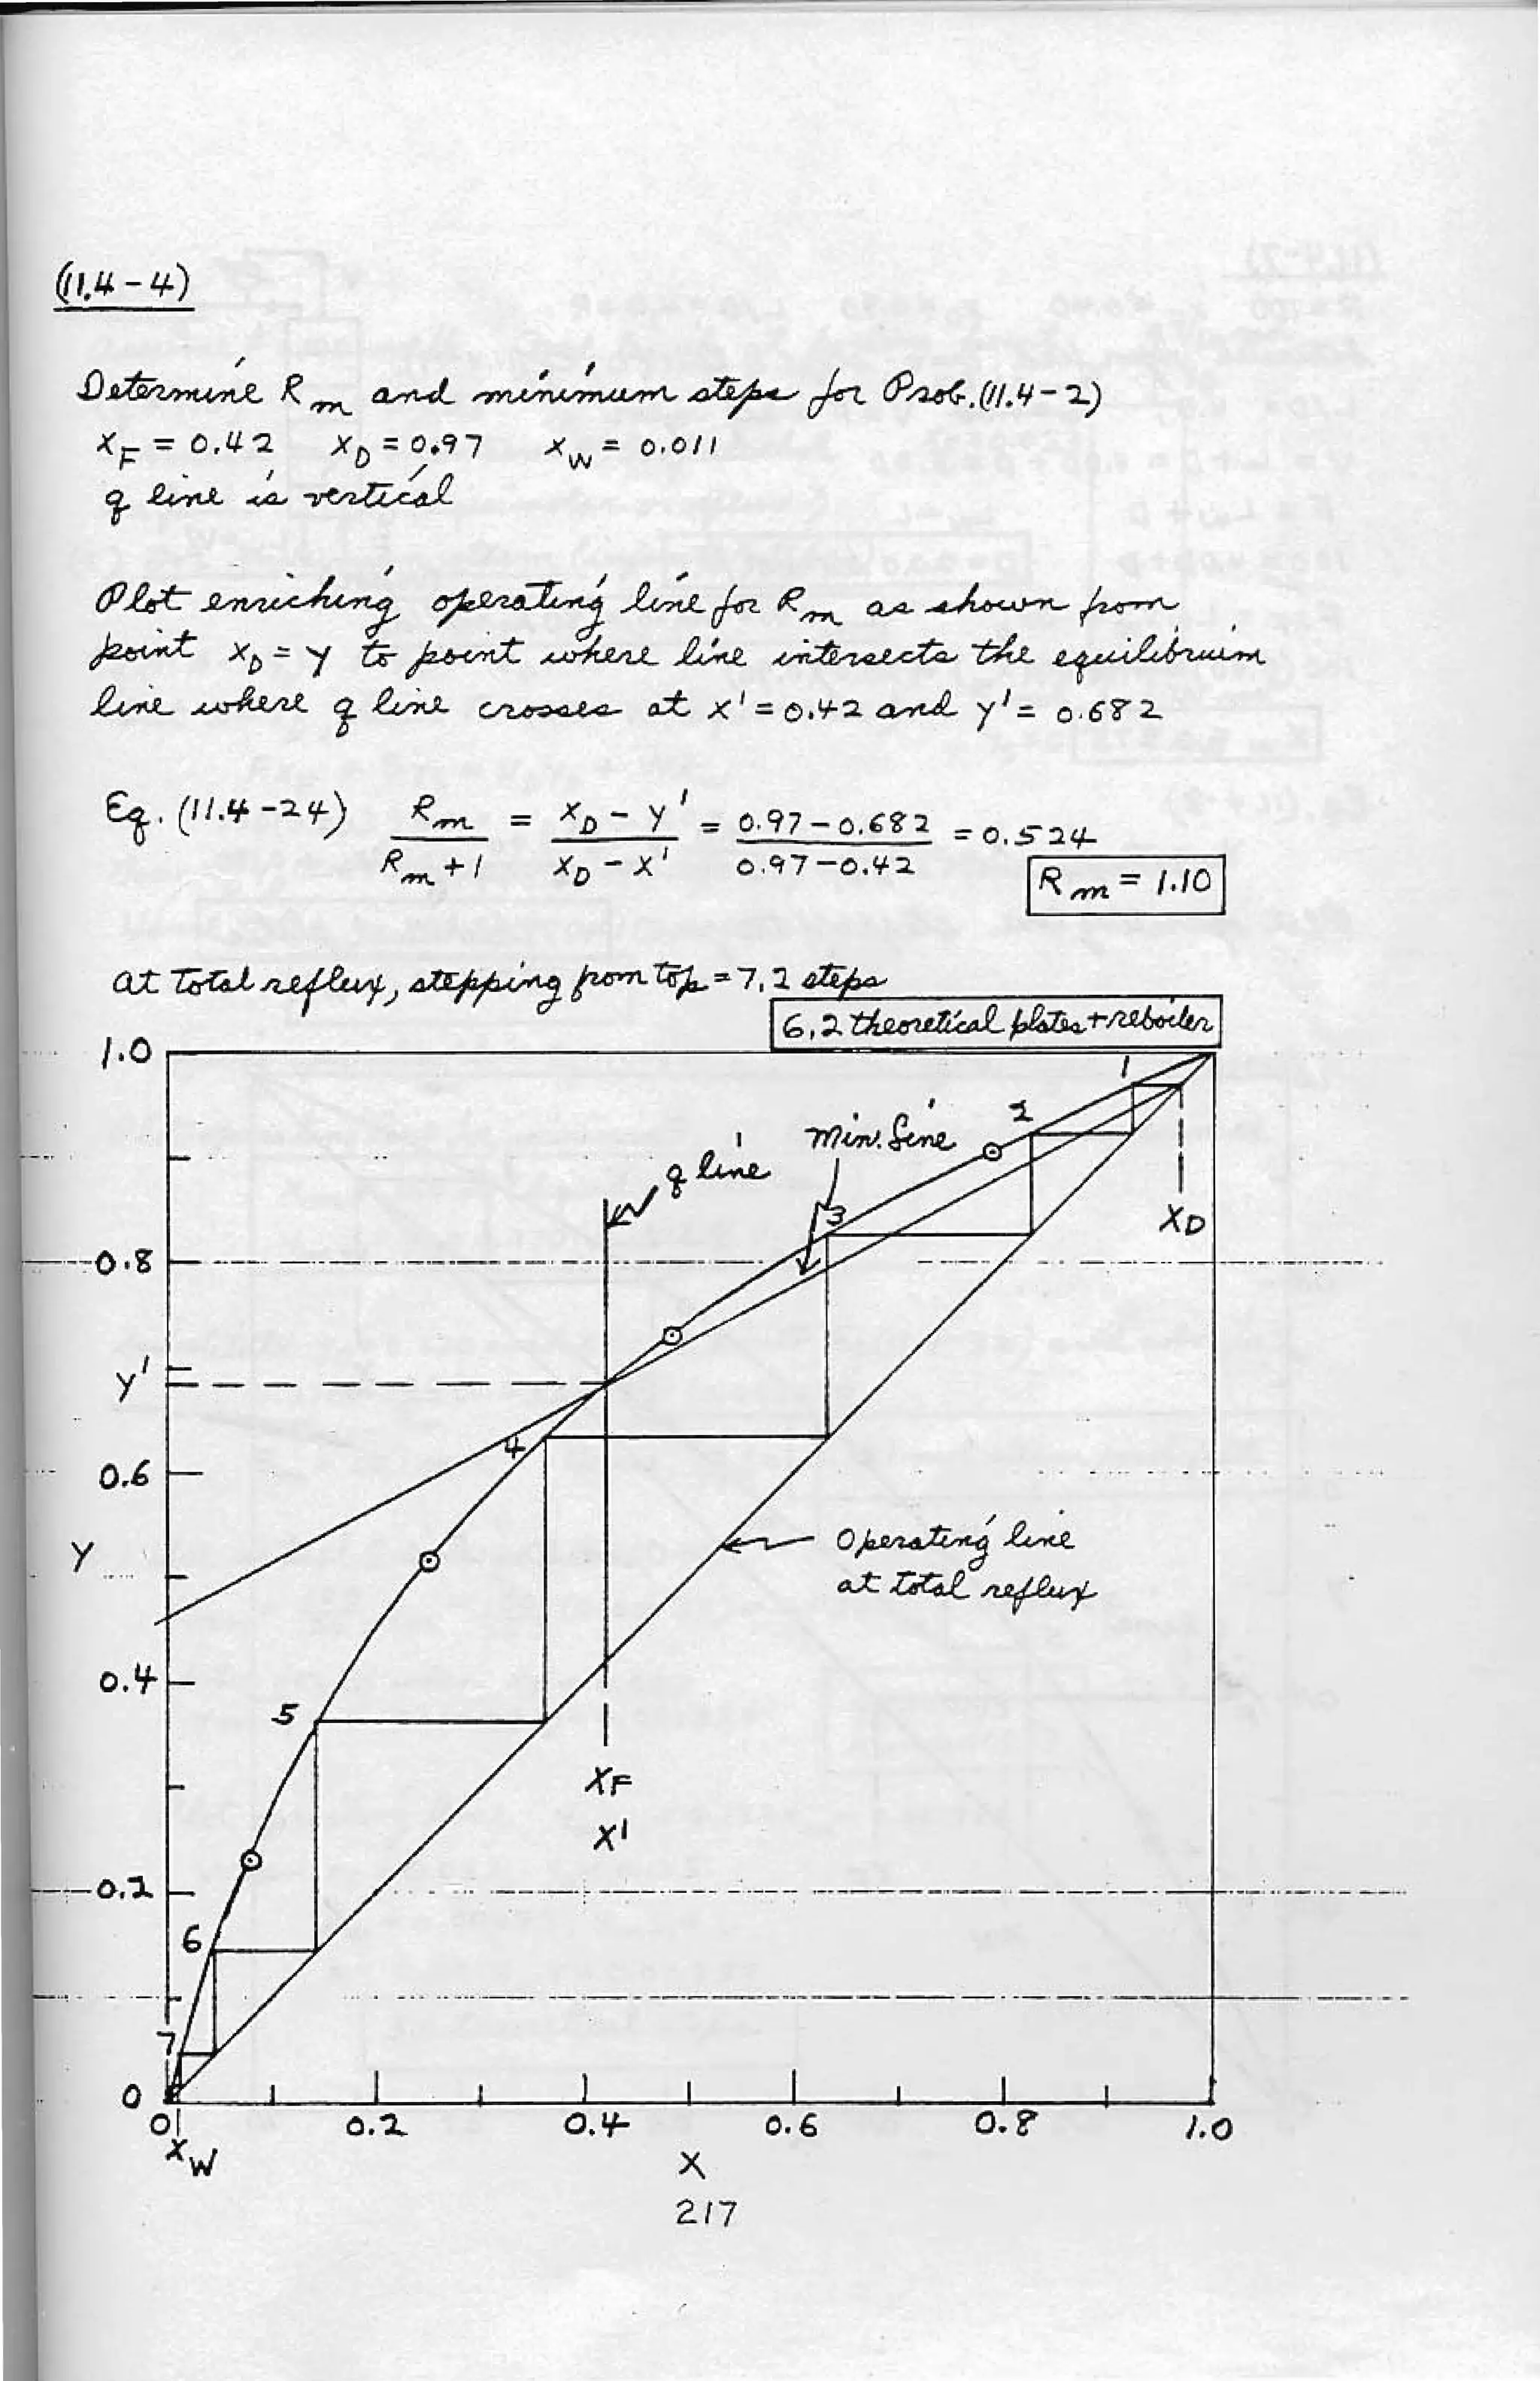 (11.4-4)
Determine Rm and minimum steps for Prob. (11.4-2)
xF = 0.42 xD = 0.97 xW = 0.011
q line is vertical
Plot enriching operating line for Rm as shown from
point xD = y to point where line intersects the equilibrium
line where q line crosses at x' = 0.42 and y' = 0.682
Eq. (11.4-24) Rm/(Rm+1) = (xD - y')/(xD - x') = (0.97-0.682)/(0.97-0.42) = 0.524
Rm = 1.10
At total reflux, stepping from top = 7.2 steps
6.2 theoretical plates + reboiler
1.0
1
2
min. line
q line
3
xD
0.8
y'
4
0.6
y
Operating line
at total reflux
0.4
5
xF
x'
0.2
6
7
0
0 0.2 0.4 0.6 0.8 1.0
xW
x
217